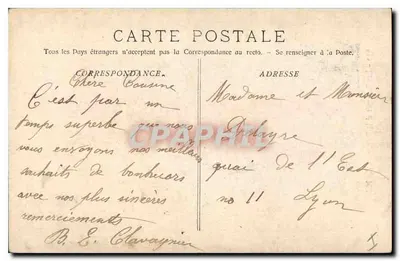 CARTE POSTALE
Tous les Pays étrangers n'acceptent pas la Correspondance au recto. - Se renseigner à la Poste.
CORRESPONDANCE
Chère Cousine
C'est par un
temps superbe que nous
vous envoyons nos meilleurs
souhaits de bonheurs
avec nos plus sincères
remerciements
B. E.
ADRESSE
Madame et Monsieur
quai de l'Est
no 11 Lyon
CRAPHU